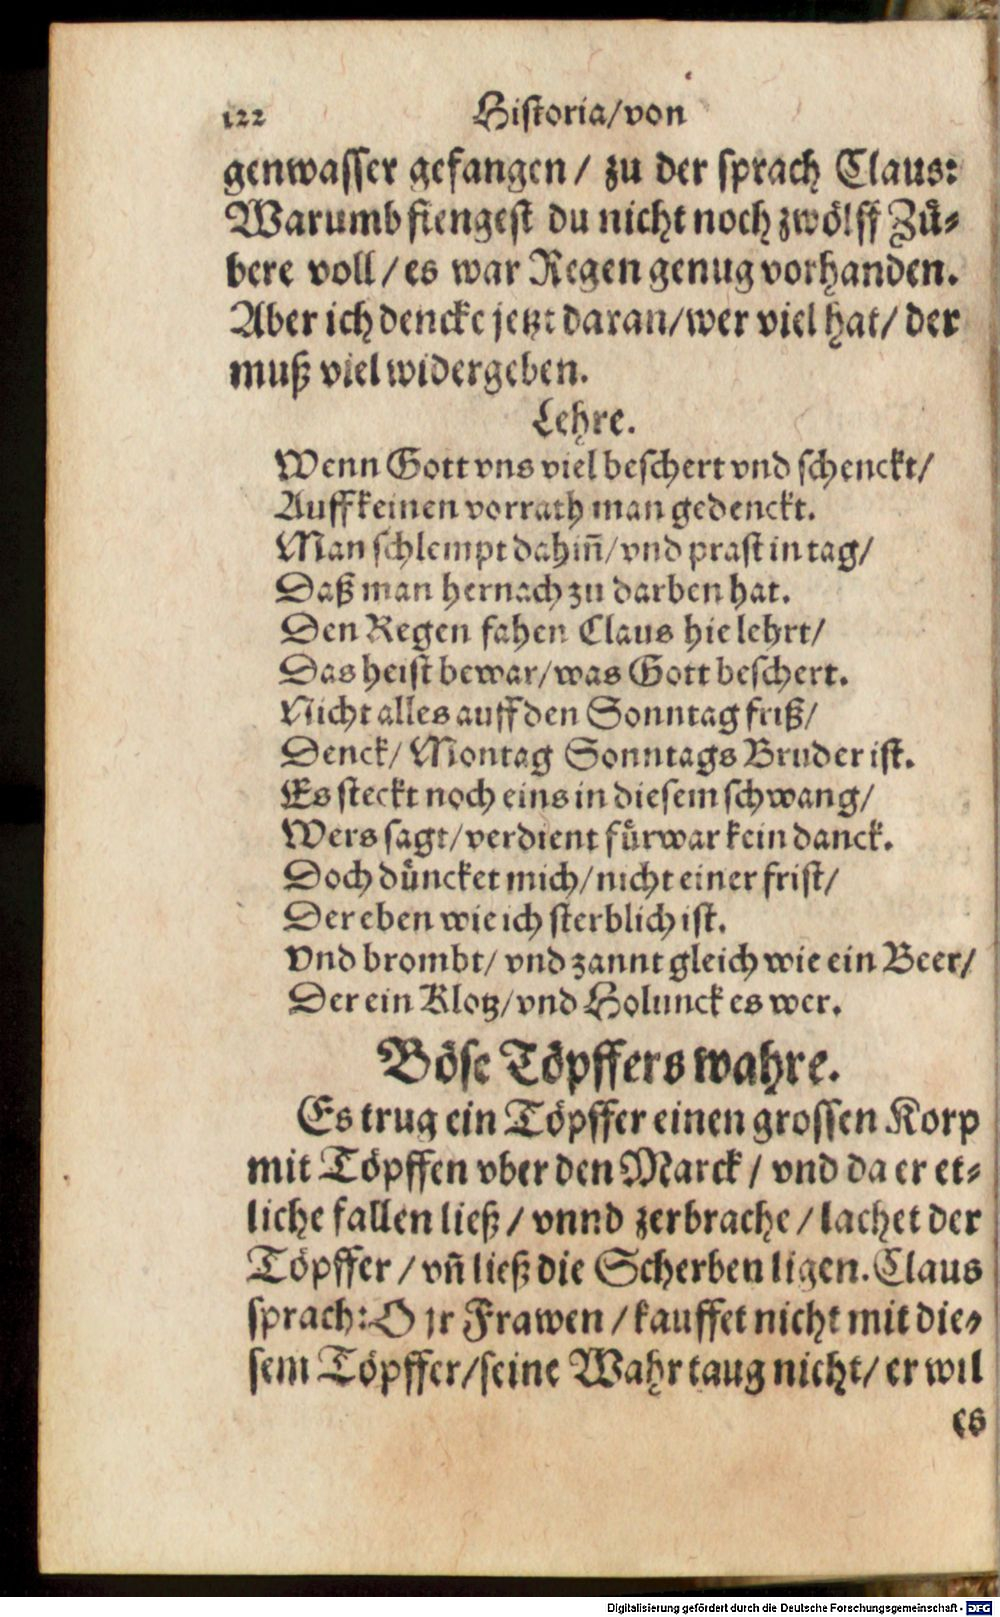 122 Historia/von
genwasser gefangen/ zu der sprach Claus:
Warumb fiengest du nicht noch zwoͤlff Zuͤ-
bere voll/es war Regen genug vorhanden.
Aber ich dencke jetzt daran/wer viel hat/ der
muß viel widergeben.
Lehre.
Wenn Gott vns viel beschert vnd schenckt/
Auff keinen vorrath man gedenckt.
Man schlempt dahin̄/vnd prast in tag/
Daß man hernach zu darben hat.
Den Regen fahen Claus hie lehrt/
Das heist bewar/was Gott beschert.
Nicht alles auff den Sonntag friß/
Denck/ Montag Sonntags Bruder ist.
Es steckt noch eins in diesem schwang/
Wers sagt/verdient fuͤrwar kein danck.
Doch duͤncket mich/nicht einer frist/
Der eben wie ich sterblich ist.
Vnd brombt/ vnd zannt gleich wie ein Beer/
Der ein Klotz/vnd Holunck es wer.
Boͤse Toͤpffers wahre.
Es trug ein Toͤpffer einen grossen Korp
mit Toͤpffen vber den Marck/ vnd da er et-
liche fallen ließ/ vnnd zerbrache/ lachet der
Toͤpffer/ vn̄ ließ die Scherben ligen. Claus
sprach: O jr Frawen/ kauffet nicht mit die-
sem Toͤpffer/seine Wahr taug nicht/ er wil
es
Digitalisierung gefördert durch die Deutsche Forschungsgemeinschaft - DFG